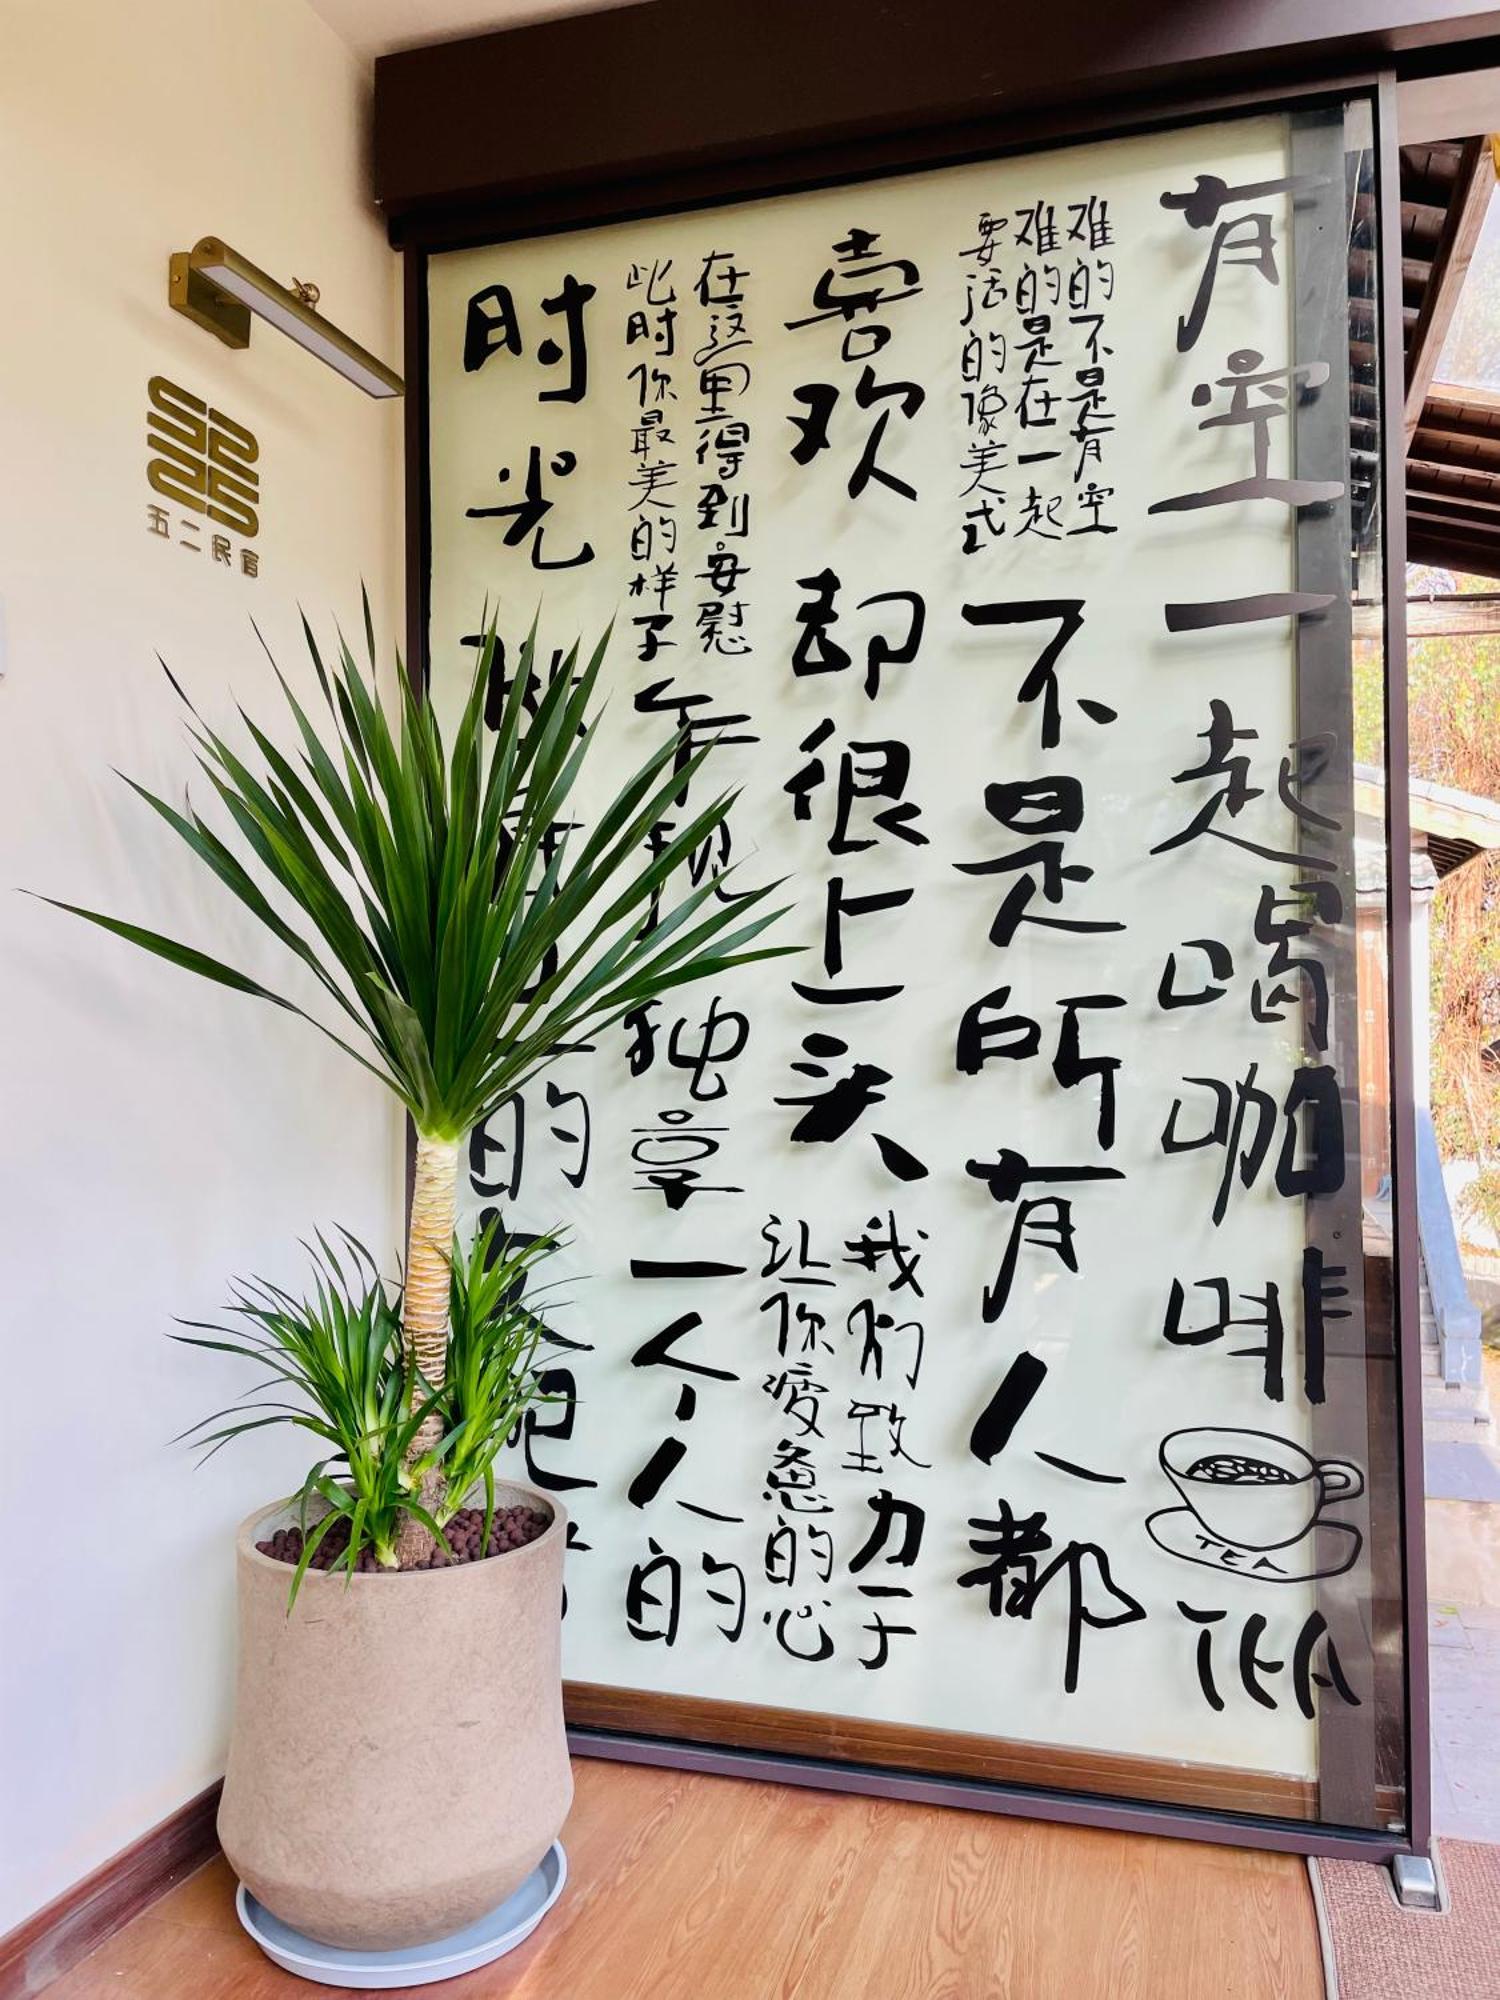 有空一起喝咖啡
TEA
TEA
难的不是有空
难的是在一起
要活的像美式
不是所有人都
喜欢却很上头
我们致力于
让你疲惫的心
在这里得到安慰
此时你最美的样子
独享一个人的
时光
的
五二民宿